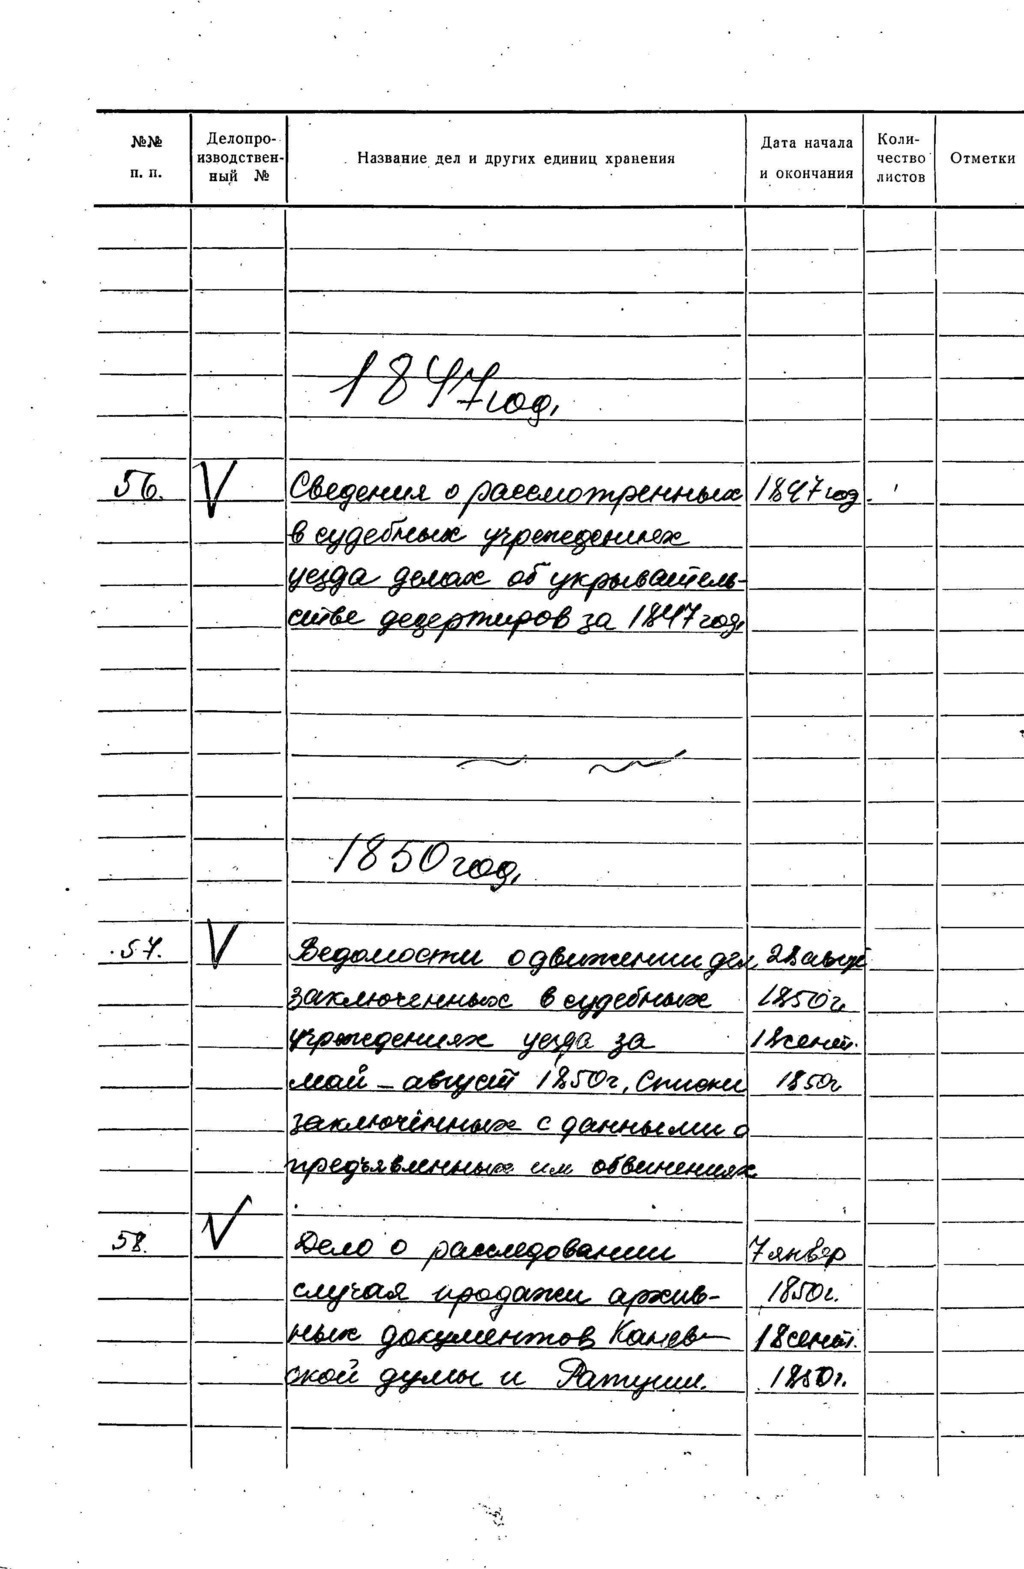 №№ п. п. Делопро- изводствен- ный № Название дел и других единиц хранения Дата начала и окончания Коли- чество листов Отметки
1847 год.
56. V Сведения о рассмотренных 1847 год.
в судебных учреждениях
уезда делах об укрыватель-
стве дезертиров за 1847 год.
1850 год.
57. V Ведомости о движении дел 28 авгус
заключенных в судебных 1850 г.
учреждениях уезда за 18 сент.
май – август 1850 г. Списки 1850 г
заключённых с данными о
предъявленных им обвинениях
58. V Дело о расследовании 7 январ
случая продажи архив- 1850 г.
ных документов Канев- 18 сент.
ской думы и Ратуши. 1850 г.